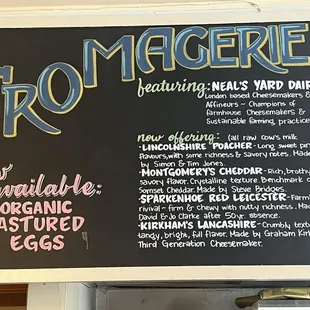 FROMAGERIE
featuring: NEAL'S YARD DAIR
London based Cheesemakers &
Affineurs - Champions of
farmhouse Cheesemakers &
Sustainable farming practices
now offering: (all raw cow's milk
• LINCOLNSHIRE POACHER - Long sweet
flavours, with some richness & savory notes. Made
by Simon & Tim Jones.
• MONTGOMERY'S CHEDDAR - Rich, brothy
savory flavor. Crystalline texture. Benchmark
Somerset Cheddar. Made by Steve Bridges.
• SPARKENHOE RED LEICESTER - Farm
rivival - firm & chewy with nutty richness. Made
David & Jo Clarke after 50yr. absence.
• KIRKHAM'S LANCASHIRE - Crumbly textu
tangy, bright, full flavor. Made by Graham Kirk
Third Generation Cheesemaker.
available:
ORGANIC
PASTURED
EGGS